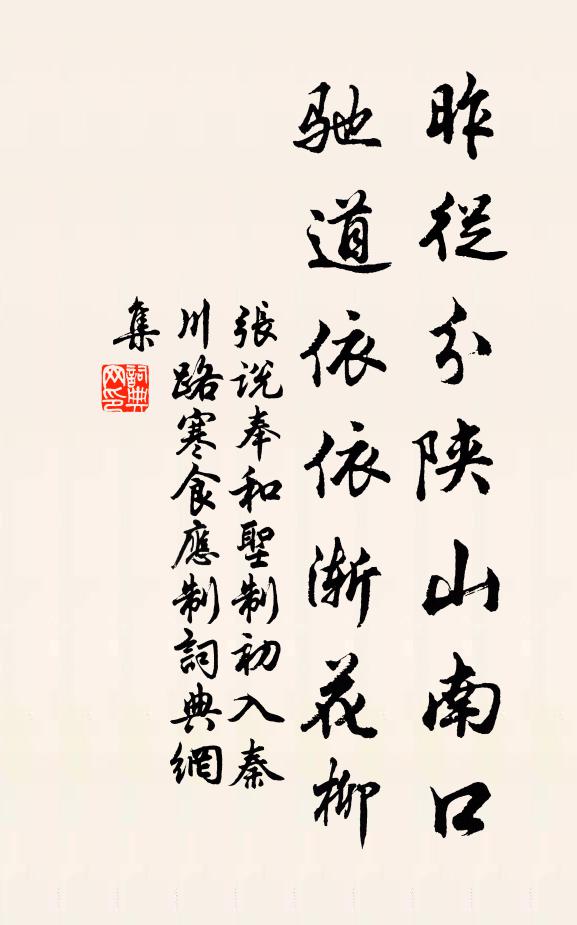 昨從分陝山南口
馳道依依漸花柳
張說奉和聖制初入秦
川路寒食應制詞典網
集
詞典
网印